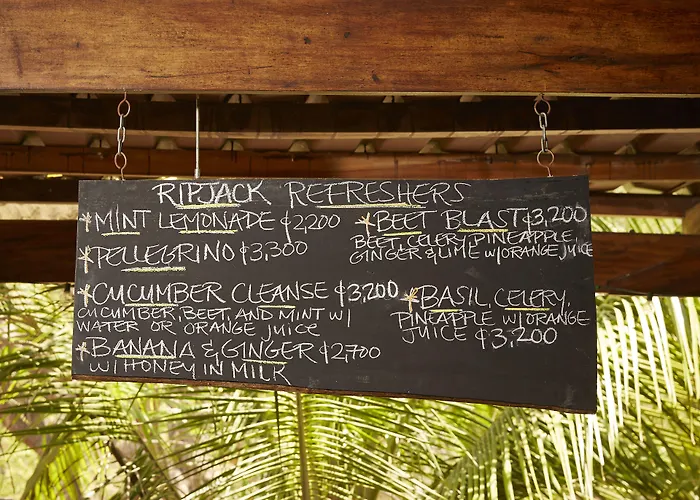 RIPJACK REFRESHERS
*MINT LEMONADE ₡2,200
*PELLEGRINO ₡3,300
*CUCUMBER CLEANSE ₡3,200
CUCUMBER, BEET, AND MINT W/
WATER OR ORANGE JUICE
*BANANA & GINGER ₡2,700
W/ HONEY IN MILK
*BEET BLAST ₡3,200
BEET, CELERY, PINEAPPLE,
GINGER & LIME W/ORANGE JUICE
*BASIL, CELERY,
PINEAPPLE W/ORANGE
JUICE ₡3,200